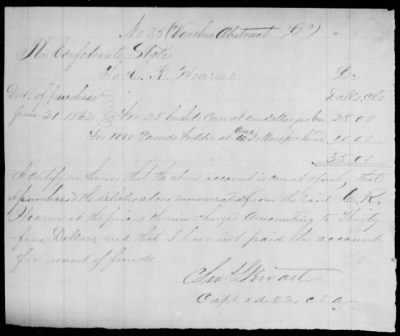 No 25 (Voucher Abstract
The Confederate States
To C. R. Hearn Dr
Date of purchase Dolls, Cts
June 21 1862 For 25 bushels Corn at one dollar per bu 25.00
For 1000 Pounds fodder at One Dollars per hund 10.00
35.00
I certify on honor that the above account is correct & just, that
I purchased the articles above enumerated from the said C. R.
Hearn at the prices therein charged Amounting to Thirty
five Dollars, and that I have not paid the account
for want of funds
Capt & A.Q.M. C.S.A.